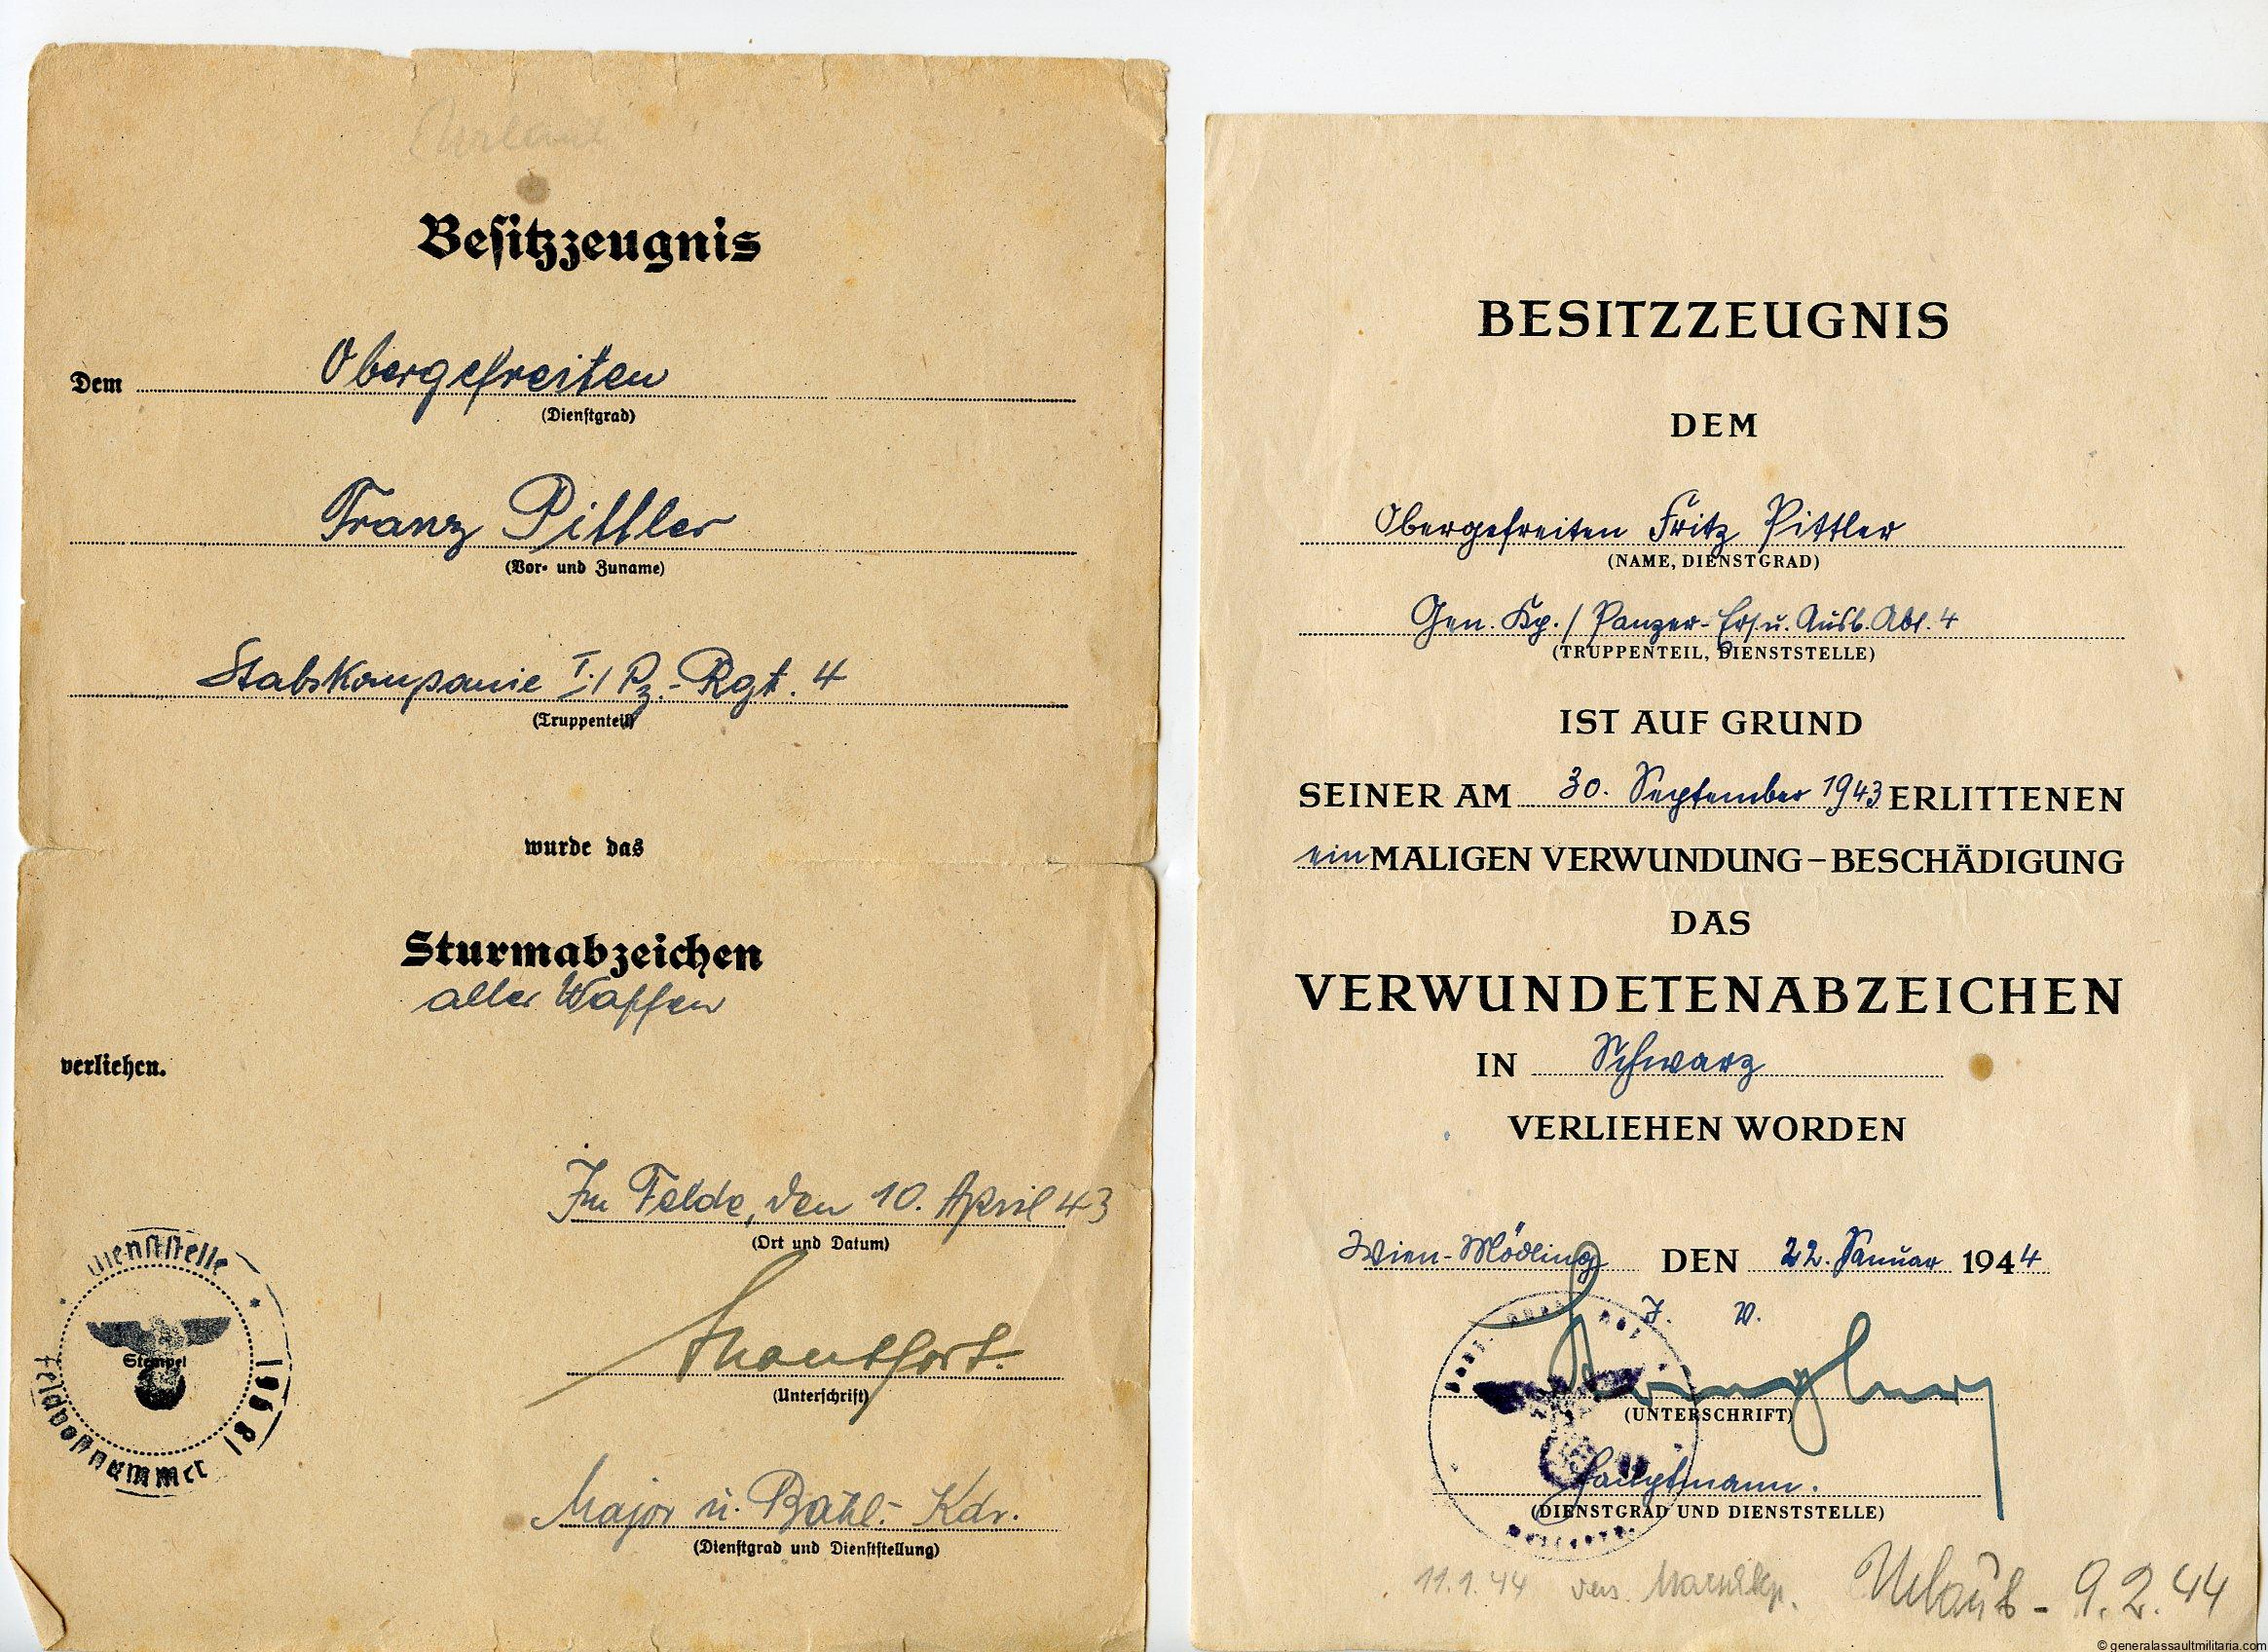 Besitzzeugnis
Dem Obergefreiten
(Dienstgrad)
Franz Pittler
(Vor- und Zuname)
Stabskompanie I./Pz.-Rgt. 4
(Truppenteil)
wurde das
Sturmabzeichen
aller Waffen
verliehen.
Im Felde, den 10. April 43
(Ort und Datum)
(Unterschrift)
Major u. Batl.- Kdr.
(Dienstgrad und Dienststellung)
Dienststelle
Stempel
Feldpostnummer
BESITZZEUGNIS
DEM
Obergefreiten Fritz Pittler
(NAME, DIENSTGRAD)
Gen. Kp. / Panzer-Ers. u. Ausb. Abt. 4
(TRUPPENTEIL, DIENSTSTELLE)
IST AUF GRUND
SEINER AM 30. September 1943 ERLITTENEN
einMALIGEN VERWUNDUNG–BESCHÄDIGUNG
DAS
VERWUNDETENABZEICHEN
IN Schwarz
VERLIEHEN WORDEN
Wien-Mödling DEN 22. Januar 1944
J. V.
(UNTERSCHRIFT)
Hauptmann.
(DIENSTGRAD UND DIENSTSTELLE)
11.1.44 vers. Marschkp.
Urlaub - 9.2.44
© generalassaultmilitaria.com